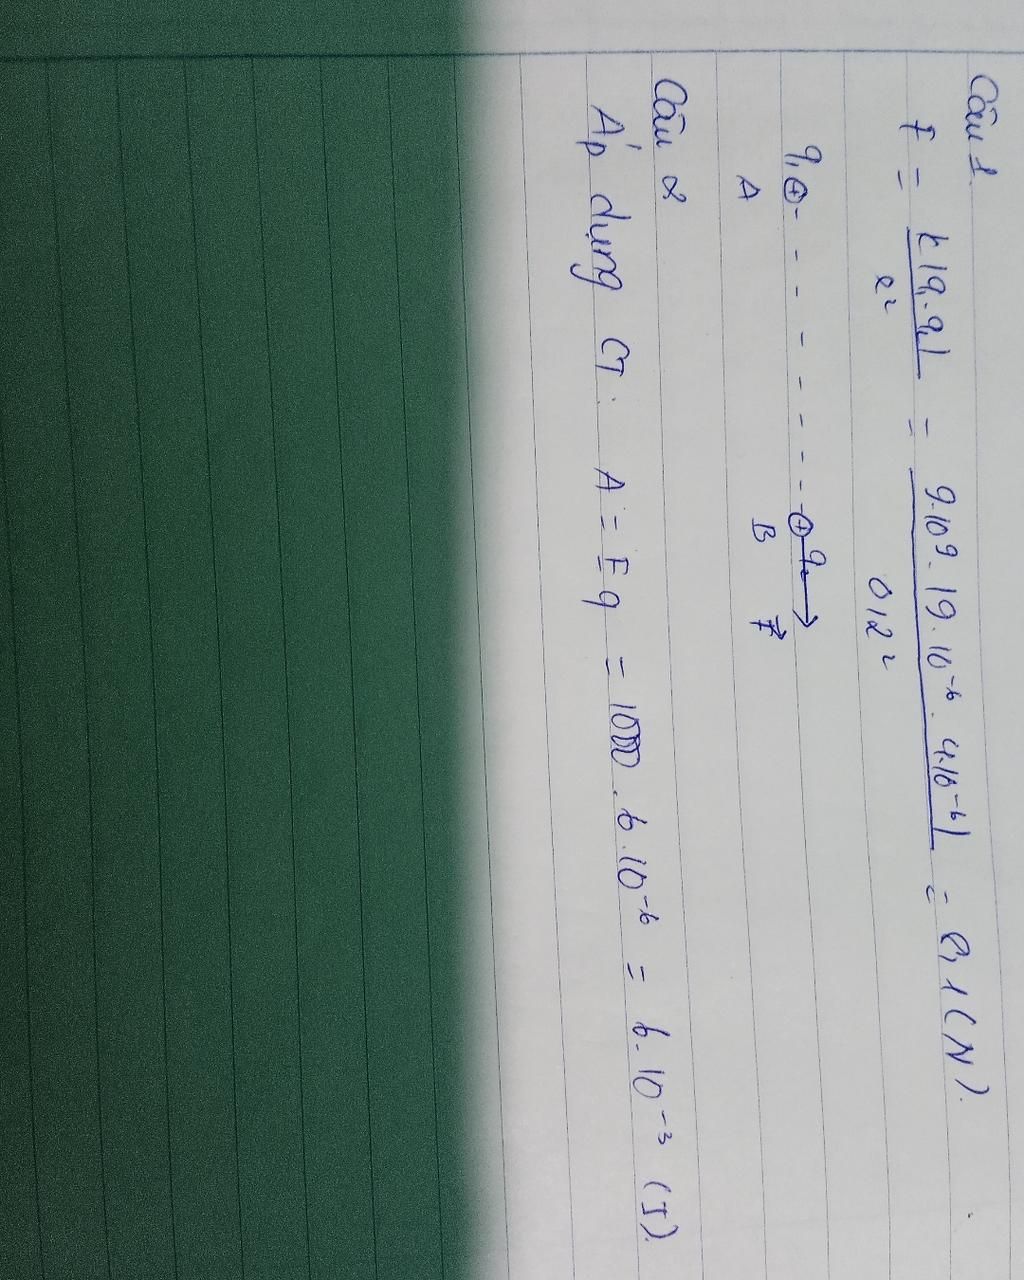 Câu 1
F = k|q₁.q₂| / r² = 9.10⁹.|9.10⁻⁶.4.10⁻⁶| / 0,2² = 8,1 (N).
q₁ ⊕ - - - - - - - - ⊕ q₂
A B F⃗
Câu 2
Áp dụng CT: A = Eq = 1000.6.10⁻⁶ = 6.10⁻³ (J).